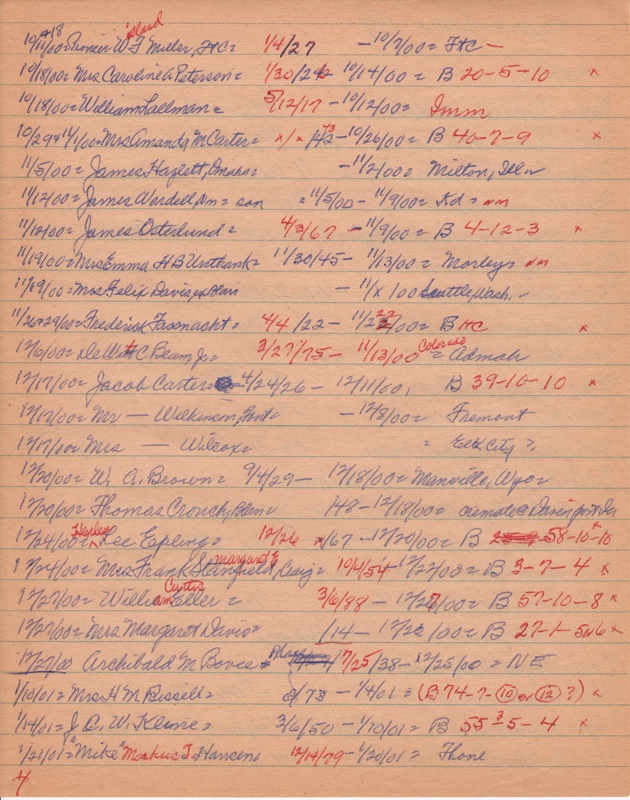 10/11/00+18= Pioneer W F Miller, HC= 1/4/27 - 10/7/00= HC -
10/18/00= Mrs Caroline A Peterson= 1/30/2 10/14/00= B 20-5-10 x
10/18/00= William Lallman= 5/12/17 - 10/12/00= Imm
10/29+11/1/00= Mrs Amanda M Carter= x/x /42 73 - 10/26/00= B 40-7-9 x
11/5/00= James Hazlett, Omaha= - 11/2/00= Milton, Ill
11/12/00= James Wardell, Om= son = 11/5/00 - 11/9/00= Kd=
11/12/00= James Osterlund= 4/3/67 - 11/9/00= B 4-12-3 x
11/19/00= Mrs Emma H B Unthank= 11/30/45 - 11/13/00= Morley=
11/19/00= Mrs Felix Davis - 11/x/00 Seattle, Wash.
11/26+29/00= Frederick Fassnacht= 4/4/22 - 11/22/00= B HC x
12/6/00= DeWitt C Beam Jr= 3/27/75 - 11/13/00 Colorado = Admah
12/17/00= Jacob Carter= 4/24/26 - 12/11/00, B 39-10-10 x
12/17/00= Mr — Wilkinson, - 12/8/00= Fremont
12/17/00= Mrs — Wilcox= = City
12/20/00= W. A. Brown= 9/4/29 - 12/18/00= Manville, Wyo=
12/20/00= Thomas Crouch, Blair= /48 - 12/18/00= cremated Davenport Ia
12/24/00= Harley Lee Epling= 12/26 x/67 - 12/20/00= B 58-10-10 x
12/24/00= Mrs Frank Stanfield, Margaret E Craig= 10/4/54 - 12/22/00= B 3-7-4 x
12/27/00= William Curtis Eller= 3/6/88 - 12/27/00= B 57-10-8 x
12/27/00= Mrs Margaret Davis= /14 - 12/2 /00= B 27-1-5 x
12/27/00 Archibald M Bovee= Blair 7/25/38 - 12/25/00= NE
1/10/01= Mrs H M Bissell= 8/73 - 1/4/01= (B 74-7-10 or 12?) x
1/14/01= J. C. W. Kleine= 3/6/50 - 1/10/01= B 55-5-4 x
1/21/01= "Mike" Markus J. Hansen= 12/14/79 - 1/20/01=
4